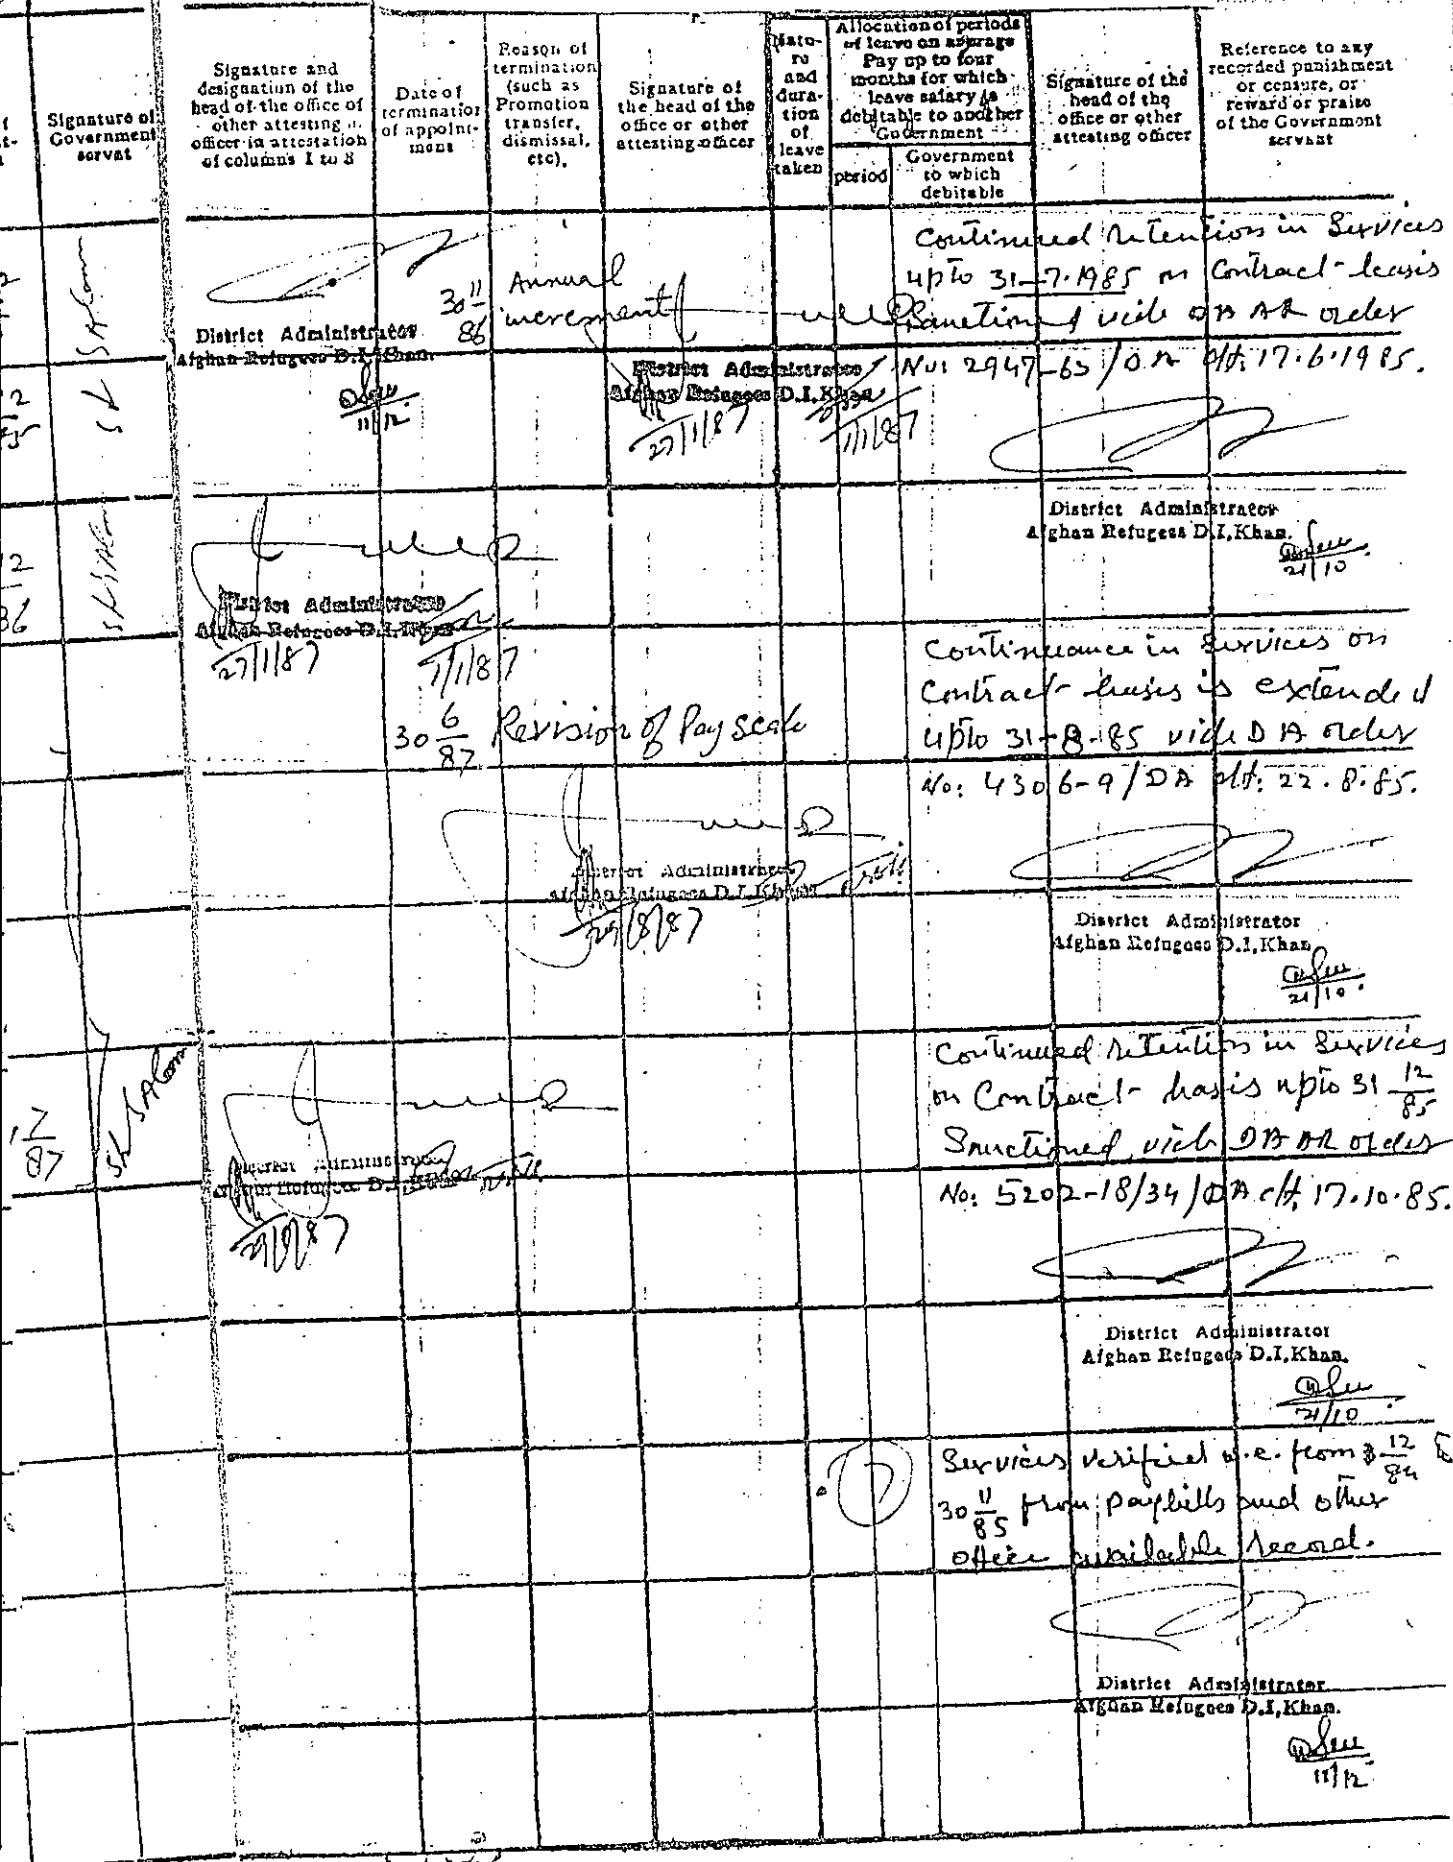 Signature of
Government
servat
Signature and
designation of the
head of the office of
other attesting
officer in attestation
of columns 1 to 8
Date of
termination
of appoint-
ment
Reason of
termination
(such as
Promotion
transfer,
dismissal,
etc).
Signature of
the head of the
office or other
attesting officer
Natu-
re
and
dura-
tion
of
leave
taken
Allocation of periods
of leave on average
Pay up to four
months for which
leave salary is
debitable to another
Government
period
Government
to which
debitable
Signature of the
head of the
office or other
attesting officer
Reference to any
recorded punishment
or censure, or
reward or praise
of the Government
servant
District Administrator
Afghan Refugees D.I.Khan.
11/12
30 11/86
Annual
increment
District Administrator
Afghan Refugees D.I.Khan
27/1/87
7/1/87
Continued retention in Services
upto 31-7-1985 on Contract basis
Sanctioned vide DA AR order
No: 2947-63/DA dt: 17.6.1985.
District Administrator
Afghan Refugees D.I,Khan.
21/10
District Administrator
Afghan Refugees D.I.Khan
27/1/87
7/1/87
30 6/87
Revision of Pay scale
Continuance in Services on
Contract basis is extended
upto 31-8-85 vide DA order
No: 4306-9/DA dt: 22.8.85.
District Administrator
Afghan Refugees D.I.Khan
29/8/87
District Administrator
Afghan Refugees D.I,Khan
21/10.
Continued retention in Services
on Contract basis upto 31 12/85
Sanctioned vide DA AR order
No: 5202-18/34/DA dt. 17.10.85.
7/87
District Administrator
Afghan Refugees D.I.Khan
District Administrator
Afghan Refugees D.I,Khan.
21/10
Services verified w.e. from 12/84
30 11/85 from paybills and other
office available record.
District Administrator
Afghan Refugees D.I,Khan.
11/12